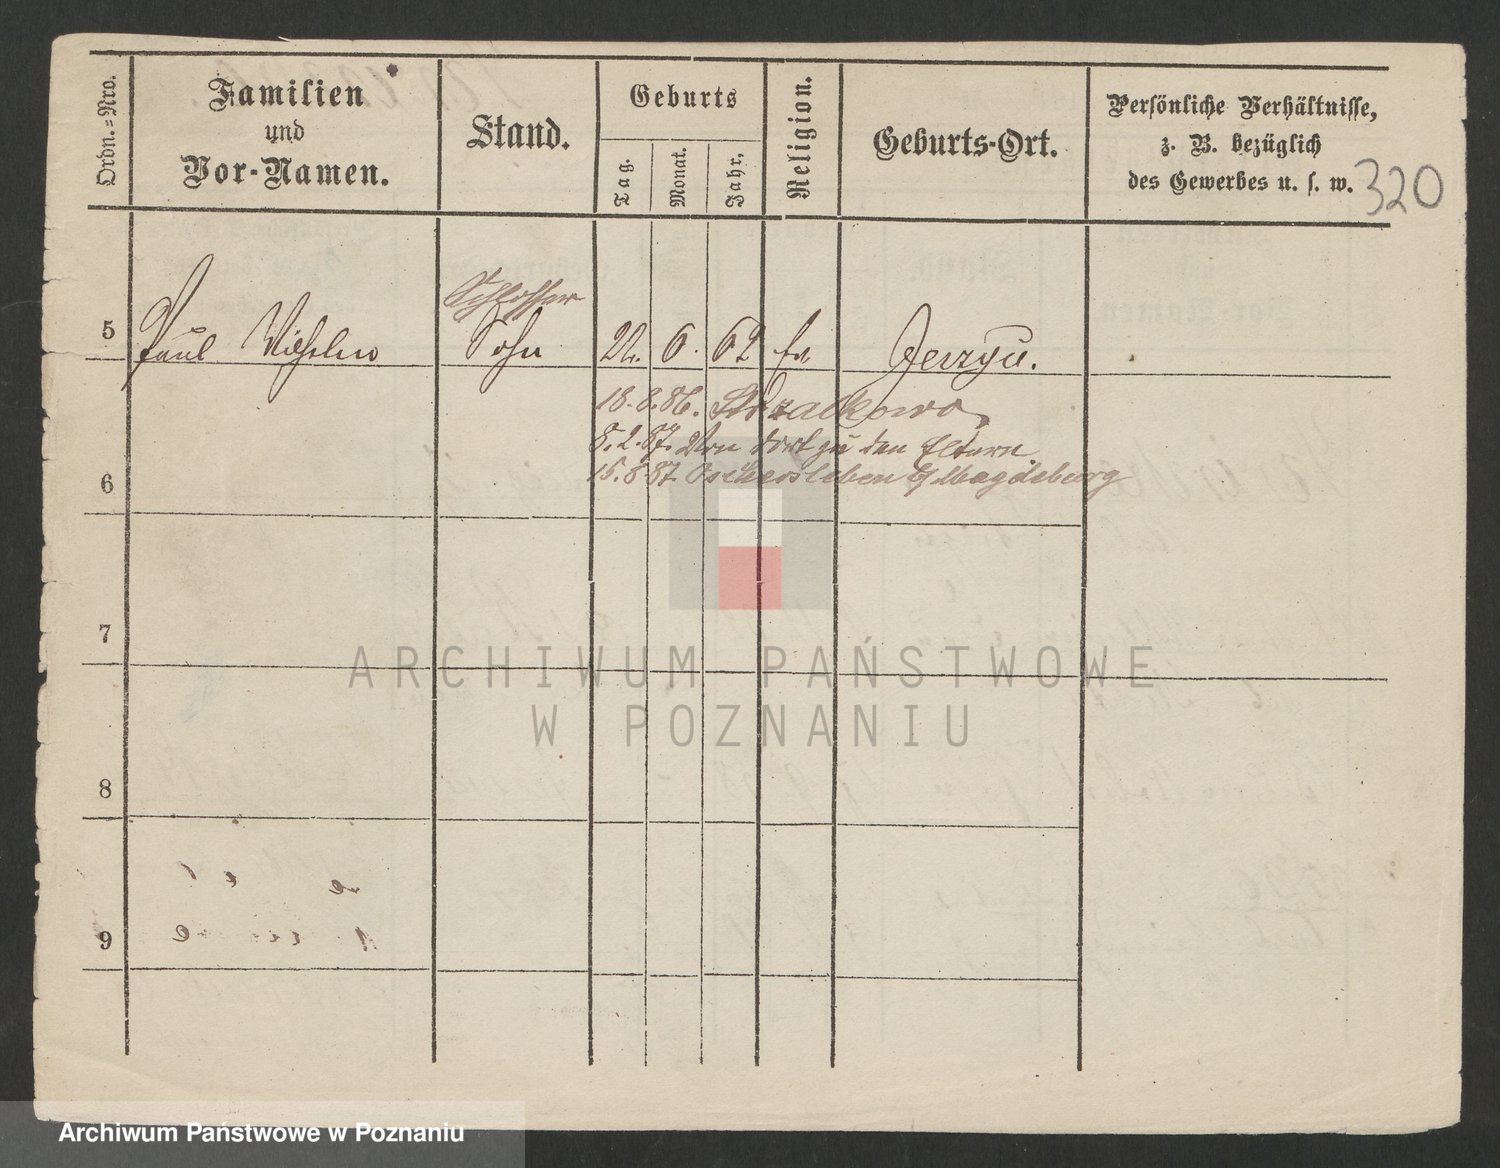 Ordn.-Nro.
Familien
und
Vor-Namen.
Stand.
Geburts
Tag.
Monat.
Jahr,
Religion.
Geburts-Ort.
Persönliche Verhältnisse,
z. B. bezüglich
des Gewerbes u. s. w.
320
Schlosser
5 Paul Wilhelm Sohn 22. 6. 62 ev. Jerzyce.
18.8.86.
8.2.87. Von dort zu den Eltern
6 15.8.87. Oschersleben b/Magdeburg
7
8
9
ARCHIWUM PAŃSTWOWE
W POZNANIU
Archiwum Państwowe w Poznaniu